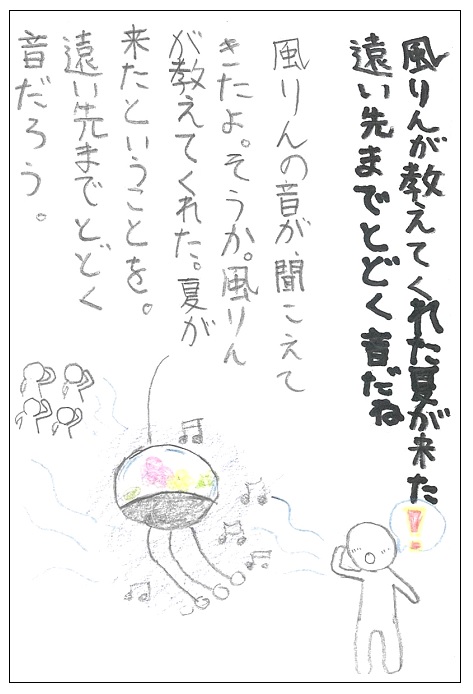 風りんが教えてくれた夏が来た!
遠い先までとどく音だね
風りんの音が、聞こえて
きたよ。そうか。風りん
が教えてくれた。夏が
来たということを。
遠い先までとどく
音だろう。